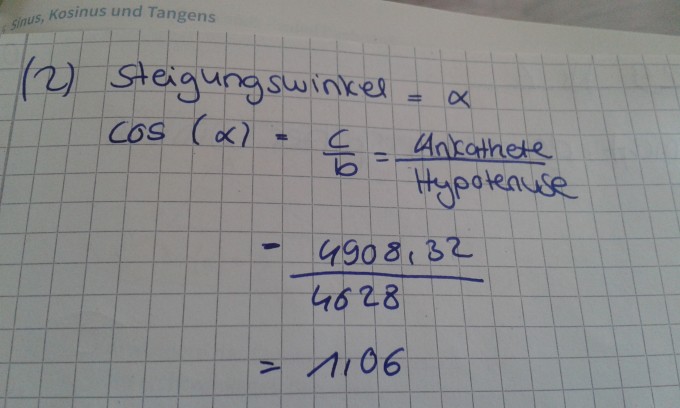 Sinus, Kosinus und Tangens
(2) Steigungswinkel = α
cos (α) = c/b = Ankathete/Hypotenuse
= 4908,32/4628
= 1,06